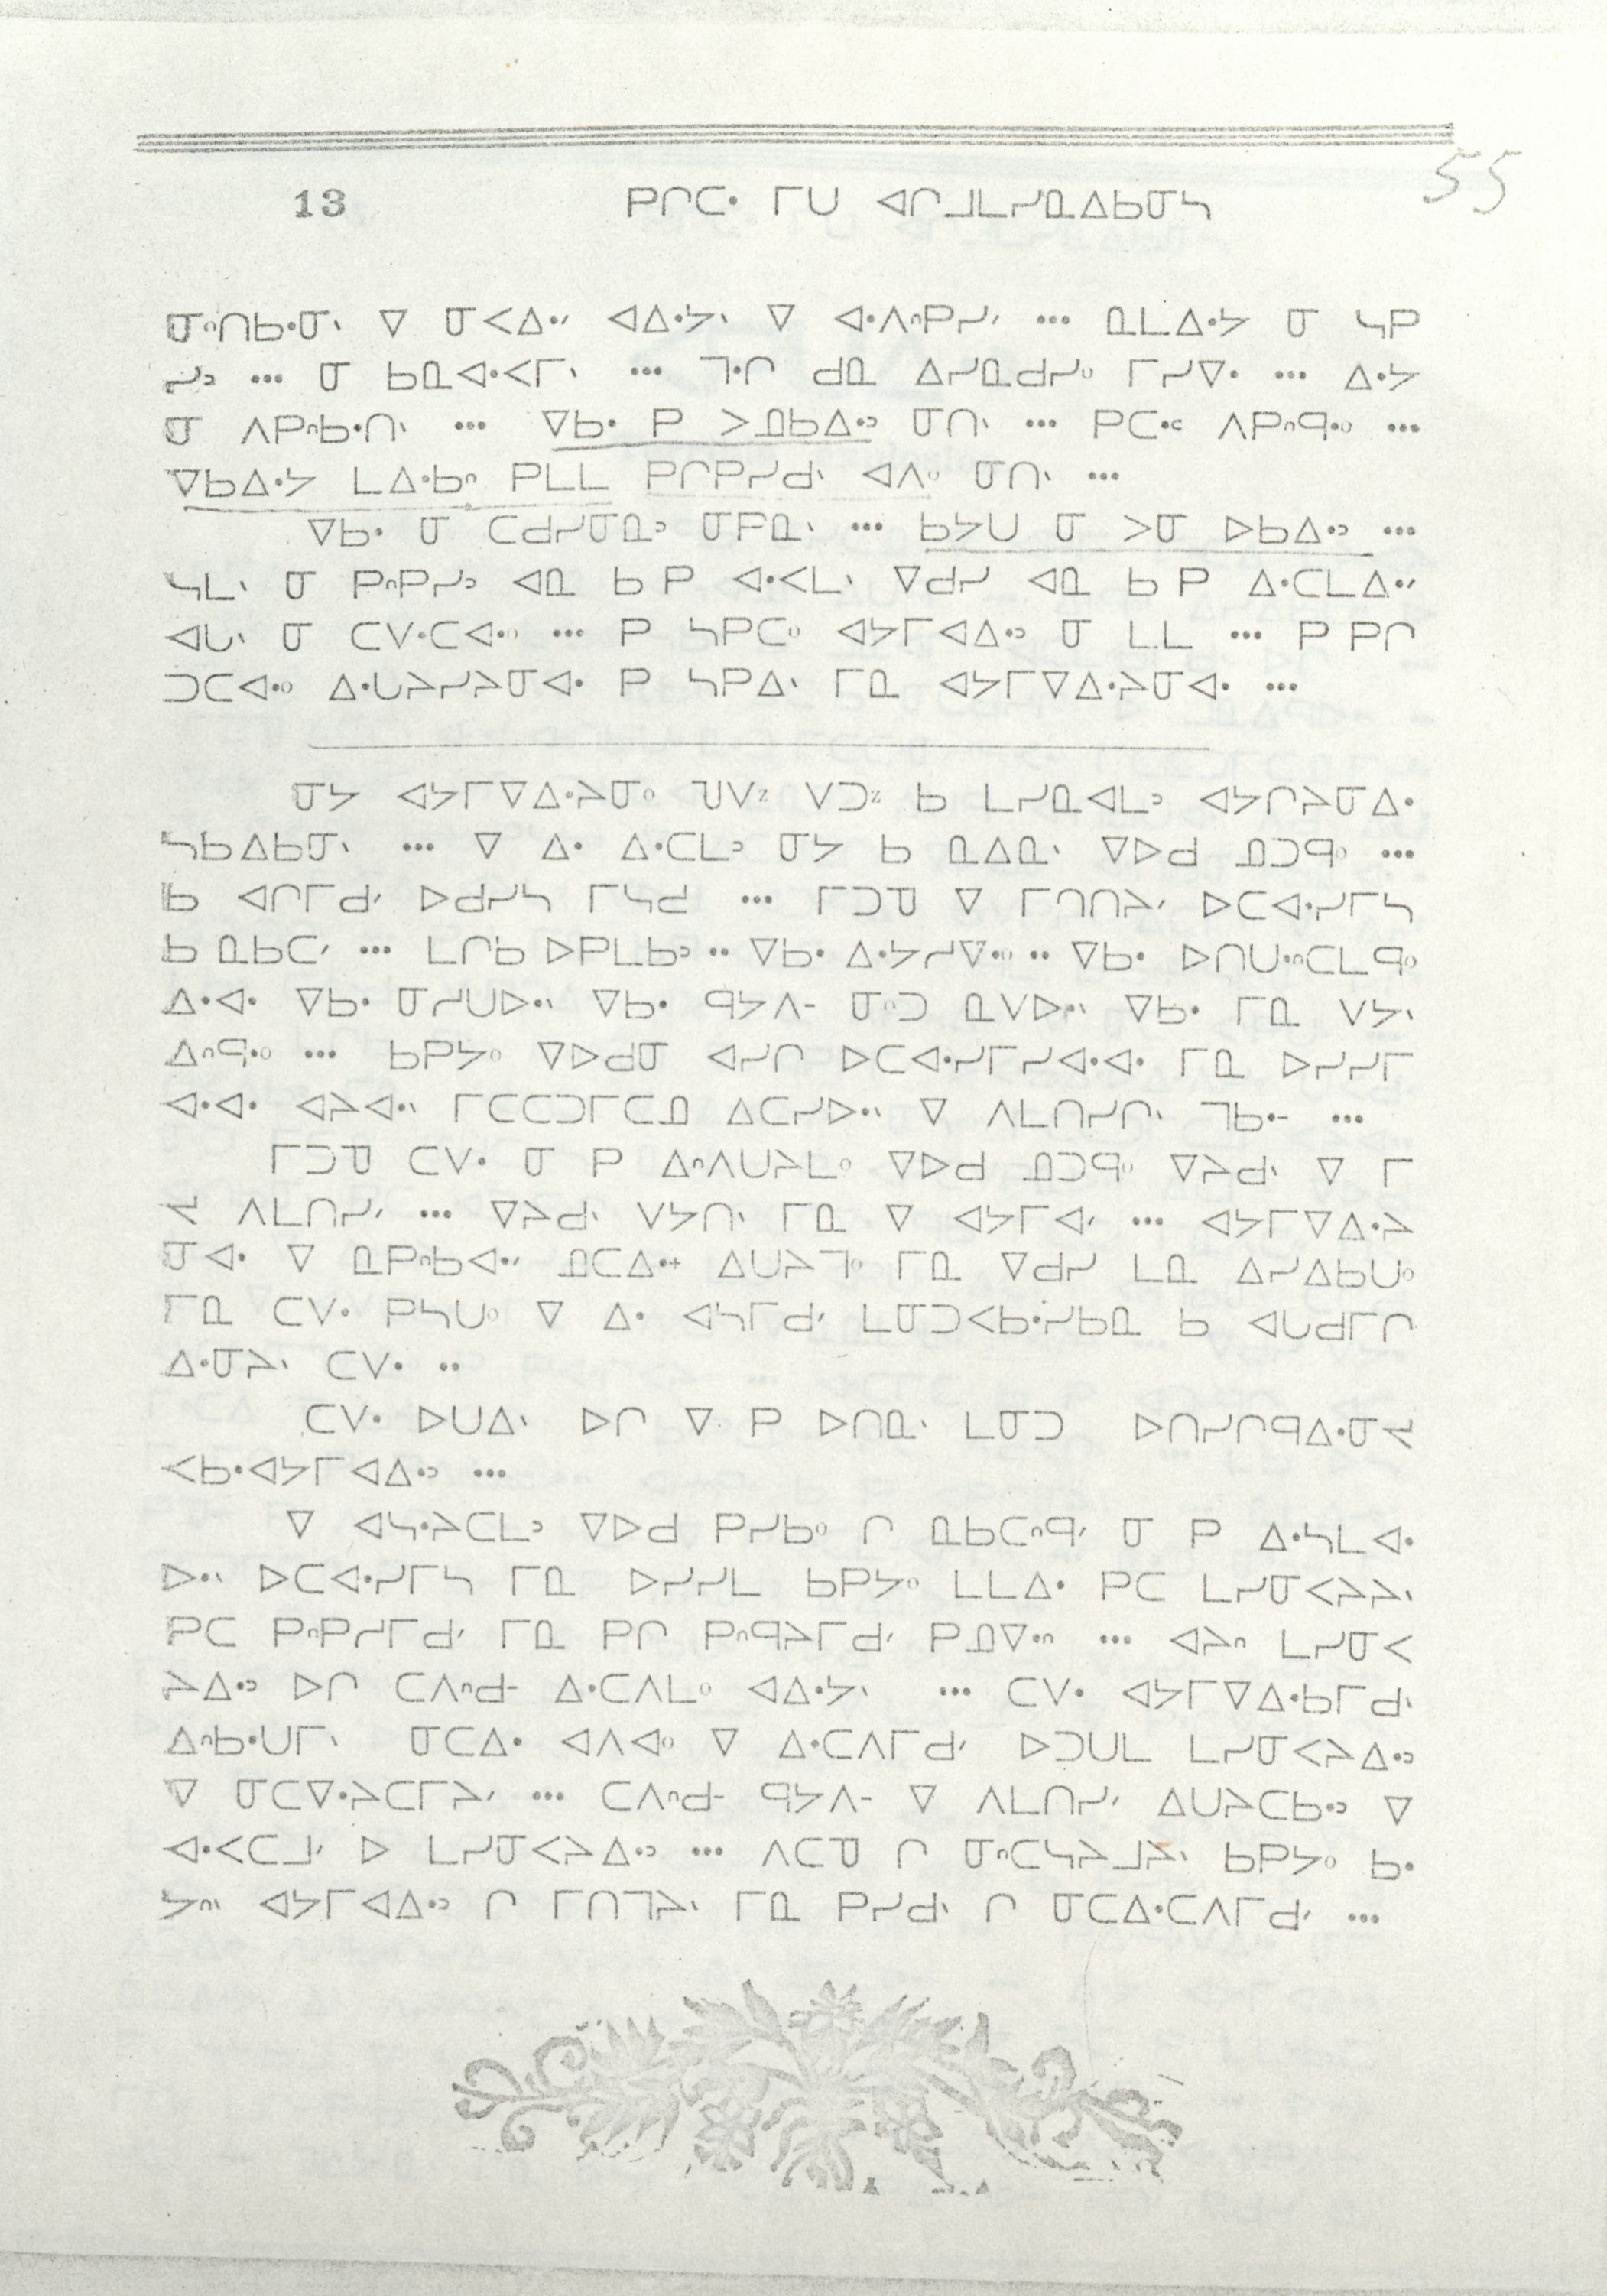 13 ᑭᒋᑕᐧ ᒥᑌ ᐊᒋᒧᒪᓯᓇᐃᑲᓂᓴ
55
ᓂᐢᑎᑲᐧᓂᐠ ᐁ ᓂᐸᐃᐧᐟ ᐊᐃᐧᔭᐠ ᐁ ᐊᐧᐱᐢᑭᓯᐟ ... ᓇᒪᐃᐧᔭ ᓂ ᓴᑭ
ᓯᐣ ... ᓂ ᑲᓇᐊᐧᐸᒥᐠ ... ᒣᐧᒋ ᑯᓇ ᐃᓯᓇᑯᓯᐤ ᒥᓯᐁᐧ ... ᐃᐧᔭ
ᓂ ᐱᑭᐢᑲᐧᑎᐠ ... ᐁᑲᐧ ᑭ ᐳᓄᑲᐃᐧᐣ ᓂᑎᐠ ... ᑭᑕᐧᑊ ᐱᑭᐢᑫᐧᐤ ...
ᐁᑲᐃᐧᔭ ᒪᐃᐧᑲᐢ ᑭᒪᒪ ᑭᒋᑭᓯᑯᐠ ᐊᐱᐤ ᓂᑎᐠ ...
ᐁᑲᐧ ᓂ ᑕᑯᓯᓂᓇᐣ ᓂᑭᓇᐠ ... ᑲᔭᑌ ᓂ ᐳᓂ ᐅᑲᐃᐧᐣ ...
ᓴᒪᐠ ᓂ ᑭᐢᑭᓯᐣ ᐊᓇ ᑲ ᑭ ᐊᐧᐸᒪᐠ ᐁᑯᓯ ᐊᓇ ᑲ ᑭ ᐃᐧᑕᒪᐃᐧᐟ
ᐊᑌᐠ ᓂ ᑕᐯᐧᑕᐊᐧᐤ ... ᑭ ᓴᑭᑕᐤ ᐊᔭᒥᐊᐃᐧᐣ ᓂ ᒪᒪ ... ᑭ ᑭᒋ
ᑐᑕᐊᐧᐤ ᐃᐧᑌᔨᓯᔨᓂᐊᐧ ᑭ ᓴᑭᐃᐠ ᒥᓇ ᐊᔭᒥᐁᐃᐧᔨᓂᐊᐧ ...
ᓂᔭ ᐊᔭᒥᐁᐃᐧᔨᓂᐤ ᒉᐯᶻ ᐯᑐᶻ ᑲ ᒪᓯᓇᐊᒪᐣ ᐊᔭᒋᔨᓂᐃᐧ
ᓴᑲᐃᑲᓂᐠ ... ᐁ ᐃᐧ ᐃᐧᑕᒪᐣ ᓂᔭ ᑲ ᓇᐃᓇᐠ ᐁᐅᑯ ᓄᑐᑫᐤ ...
ᑲ ᐊᒋᒥᑯᐟ ᐅᑯᓯᓴ ᒥᓴᑯ ... ᒥᑐᓀ ᐁ ᒥᑎᑎᔨᐟ ᐅᑕᐊᐧᓯᒥᓴ
ᑲ ᓇᑲᑕᐟ ... ᒪᒋᑲ ᐅᑭᒪᑲᐣ .. ᐁᑲᐧ ᐃᐧᔭᓯᐁᐧᐤ .. ᐁᑲᐧ ᐅᑎᑌᐧᐢᑕᒪᑫᐤ
ᐃᐧᐊᐧ ᐁᑲᐧ ᓂᓯᑌᐅᐧᐦ ᐁᑲᐧ ᑫᔭᐱᐨ ᓂᐢᑐ ᓇᐯᐅᐧᐦ ᐁᑲᐧ ᒥᓇ ᐯᔭᐠ
ᐃᐢᑫᐧᐤ ... ᑲᑭᔭᐤ ᐁᐅᑯᓂ ᐊᓯᒋ ᐅᑕᐊᐧᓯᒥᓯᐊᐧᐊᐧ ᒥᓇ ᐅᓯᓯᒥ
ᐊᐧᐊᐧ ᐊᔨᐊᐧᐦ ᒥᑕᑕᑐᒥᑕᓄ ᐃᑕᓯᐅᐧᐦ ᐁ ᐱᒪᑎᓯᒋᐠ ᒣᑲᐧᐨ ...
ᒥᑐᓀ ᑕᐯᐧ ᓂ ᑭ ᐃᐢᐱᑌᔨᒪᐤ ᐁᐅᑯ ᓄᑐᑫᐤ ᐁᔨᑯᐠ ᐁ ᒥ
ᔪ ᐱᒪᑎᓯᐟ ... ᐁᔨᑯᐠ ᐯᔭᑎᐠ ᒥᓇ ᐁ ᐊᔭᒥᐊᐟ ... ᐊᔭᒥᐁᐃᐧᔨ
ᓂᐊᐧ ᐁ ᓇᑭᐢᑲᐊᐧᐟ ᓄᑕᐃᐧᕀ ᐃᑌᔨᒣᐤ ᒥᓇ ᐁᑯᓯ ᒪᓇ ᐃᓯᐃᑲᑌᐤ
ᒥᓇ ᑕᐯᐧ ᑭᓴᑌᐤ ᐁ ᐃᐧ ᐊᓴᒥᑯᐟ ᒪᓂᑐᐸᑲᐧᓯᑲᓇ ᑲ ᐊᑌᑯᒥᒋ
ᐃᐧᓂᔨᐠ ᑕᐯᐧ ..
ᑕᐯᐧ ᐅᑌᐃᐠ ᐅᒋ ᐁ ᑭ ᐅᑎᓇᐠ ᒪᓂᑐ ᐅᑎᓯᒋᑫᐃᐧᓂᔪ
ᐸᑲᐧᐊᔭᒥᐊᐃᐧᐣ ...
ᐁ ᐊᓵᐧᔨᑕᒪᐣ ᐁᐅᑯ ᑭᓯᑲᐤ ᒋ ᓇᑲᑕᐢᑫᐟ ᓂ ᑭ ᐃᐧᓴᒪᐊᐧ
ᐅᐧᐦ ᐅᑕᐊᐧᓯᒥᓴ ᒥᓇ ᐅᓯᓯᒪ ᑲᑭᔭᐤ ᒪᒪᐃᐧ ᑭᑕ ᒪᓯᓂᐸᔨᔨᐠ
ᑭᑕ ᑭᐢᑭᓯᒥᑯᐟ ᒥᓇ ᑭᒋ ᑭᐢᑫᔨᒥᑯᐟ ᑭᓄᐁᐧᐢ ... ᐊᔨᐢ ᒪᓯᓂᐸ
ᔨᐃᐧᐣ ᐅᒋ ᑕᐱᐢᑯᐨ ᐃᐧᑕᐱᒪᐤ ᐊᐃᐧᔭᐠ ... ᑕᐯᐧ ᐊᔭᒥᐁᐃᐧᑲᒥᑯᐠ
ᐃᐢᑲᐧᑌᒥᐠ ᓂᑕᐃᐧ ᐊᐱᐊᐤ ᐁ ᐃᐧᑕᐱᒥᑯᐟ ᐅᑐᑌᒪ ᒪᓯᓂᐸᔨᐃᐧᐣ
ᐁ ᓂᑕᐁᐧᔨᑕᒥᔨᐟ ... ᑕᐱᐢᑯᐨ ᑫᔭᐱᐨ ᐁ ᐱᒪᑎᓯᐟ ᐃᑌᔨᑕᑲᐧᐣ ᐁ
ᐊᐧᐸᑕᒧᐟ ᐅ ᒪᓯᓂᐸᔨᐃᐧᐣ ... ᐱᑕᓀ ᒋ ᓂᐢᑕᓴᔨᒧᔨᐠ ᑲᑭᔭᐤ ᑲᐧ
ᔭᐢᐠ ᐊᔭᒥᐊᐃᐧᐣ ᒋ ᒥᑎᒣᔨᐠ ᒥᓇ ᑭᓯᑯᐠ ᒋ ᓂᑕᐃᐧᑕᐱᒥᑯᐟ ...